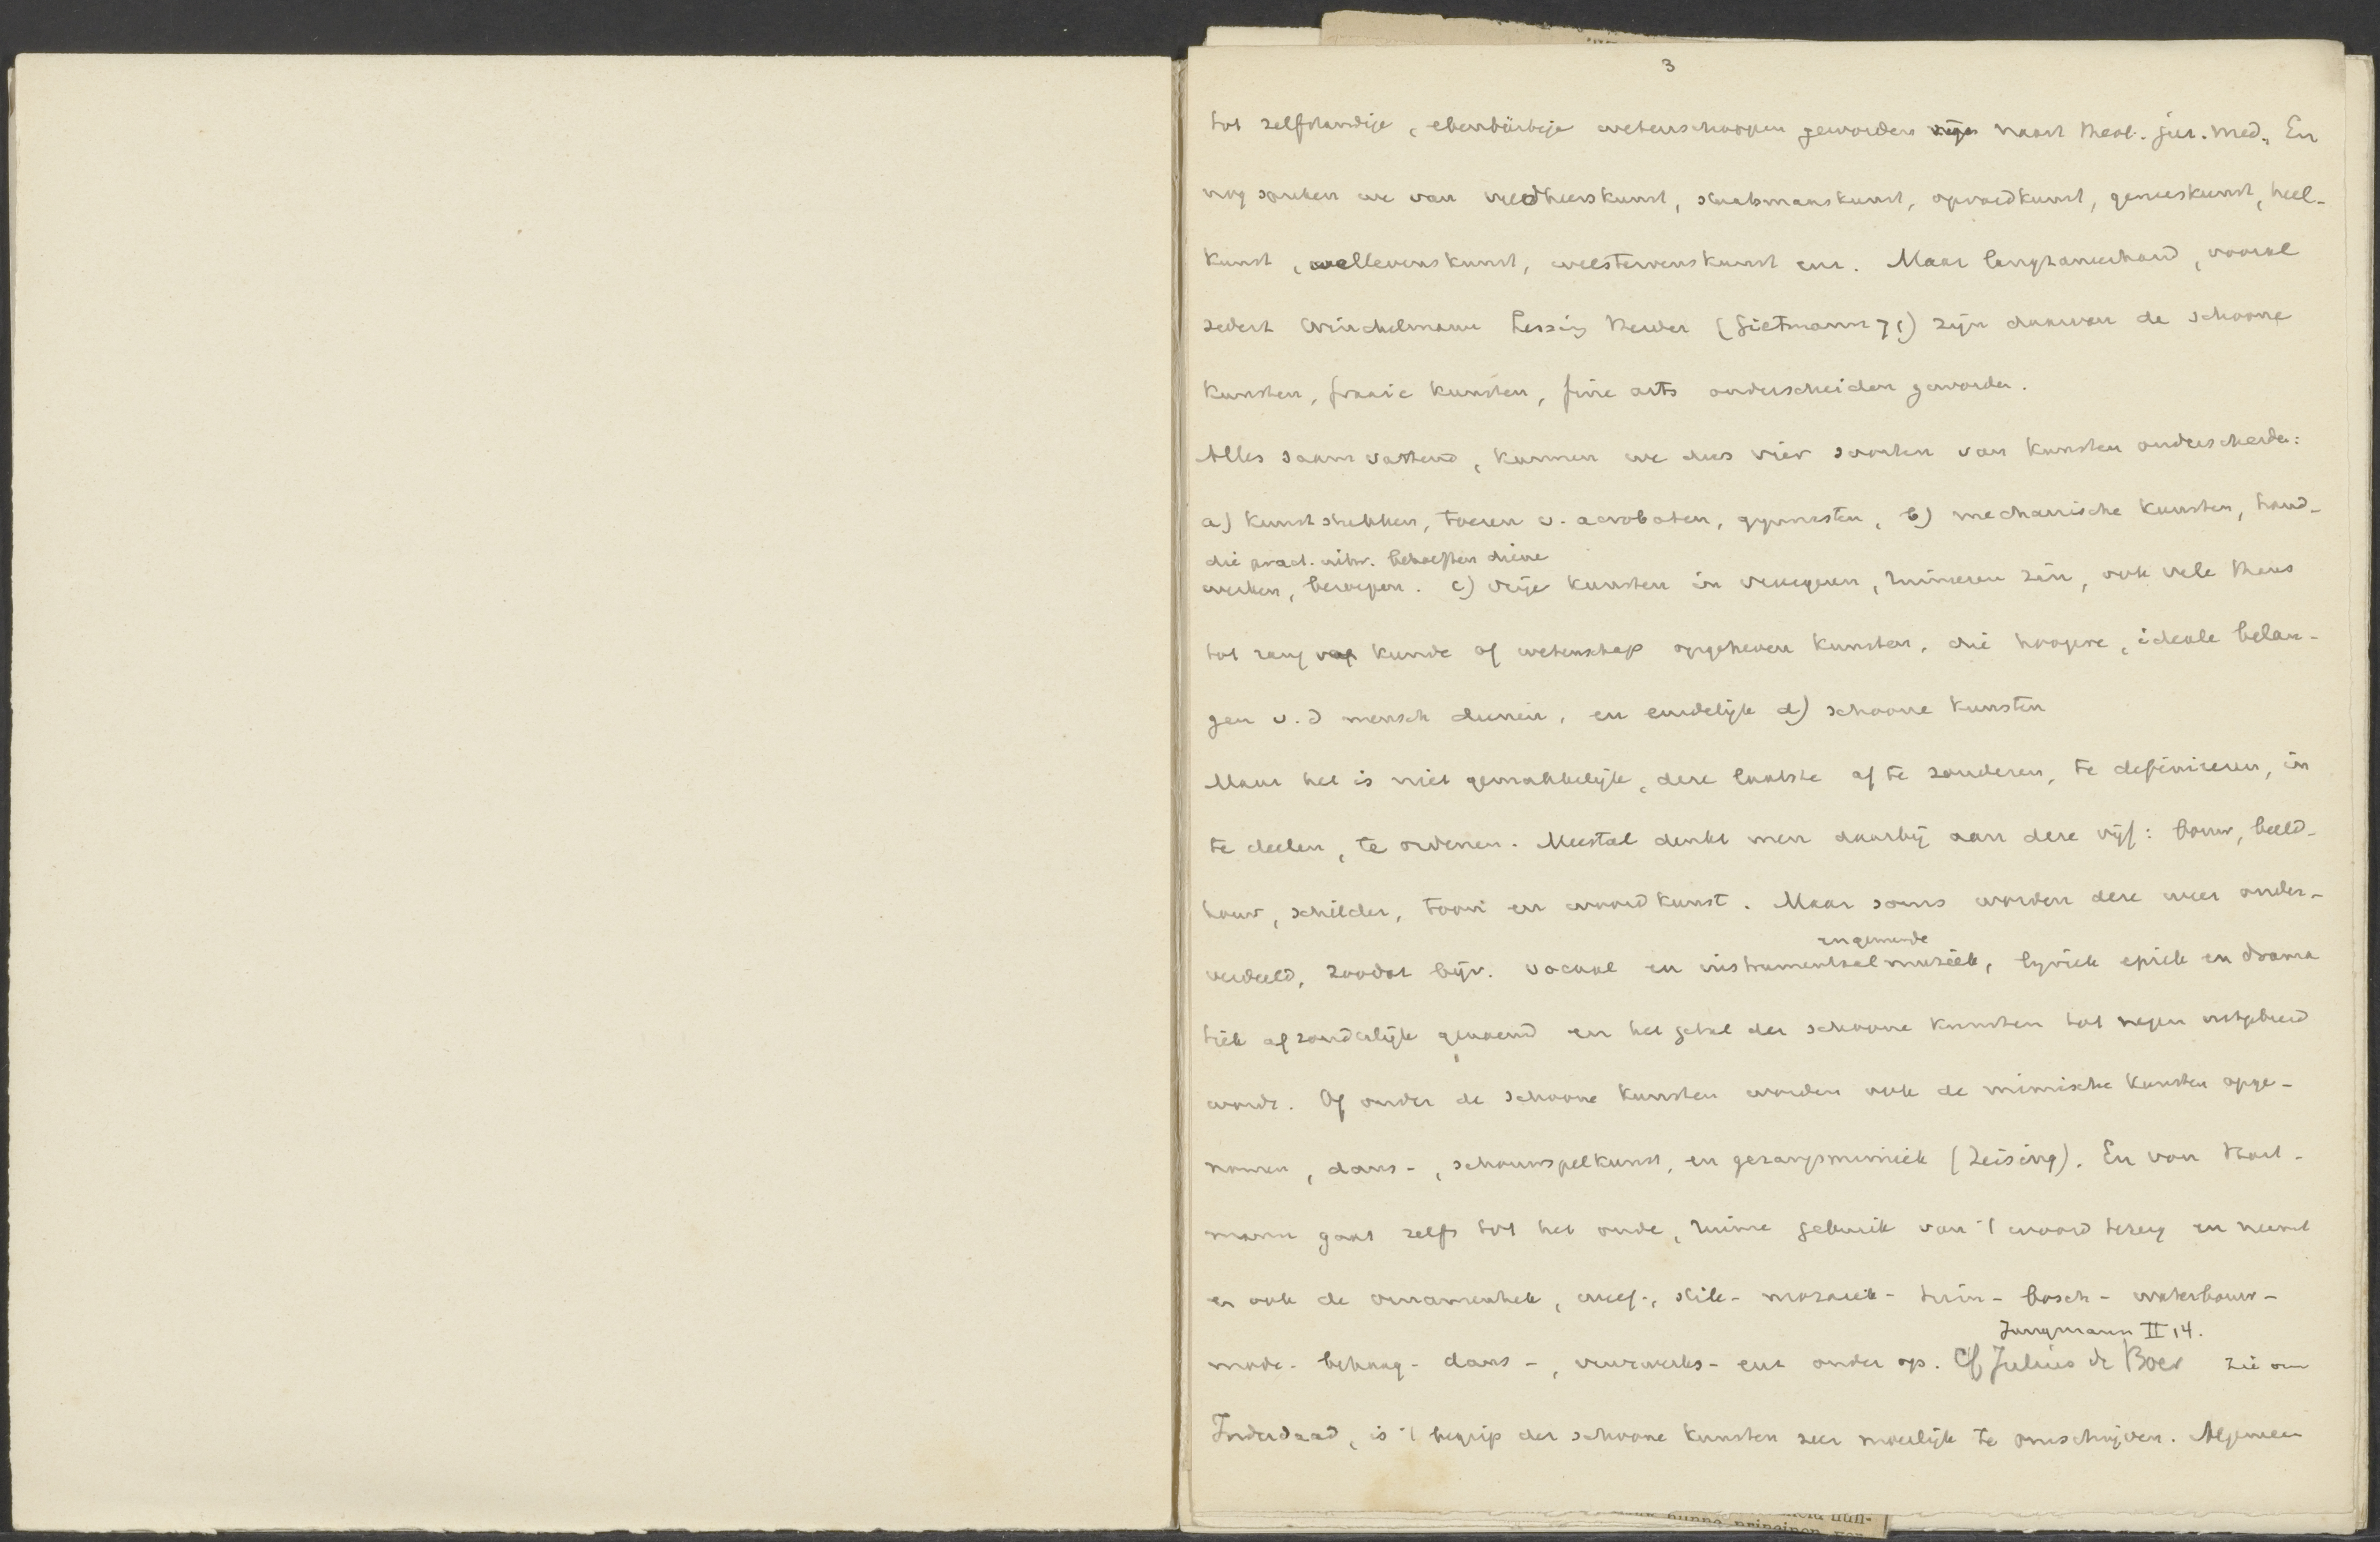 3
tot zelfstandige, ebenbürtige wetenschappen geworden naast theol. jur. med. En
nog spreken we van veldheerskunst, staatsmanskunst, opvoedkunst, geneeskunst, heel-
kunst, wellevenskunst, welstervenskunst enz. Maar langzamerhand, vooral
sedert Winckelmann Lessing Herder (Gietmann 71) zijn daarvan de schoone
kunsten, fraaie kunsten, fine arts onderscheiden geworden.
Alles saamvattend, kunnen we dus vier soorten van kunsten onderscheiden:
a) kunststukken, toeren v. acrobaten, gymnasten, b) mechanische kunsten, hand-
die pract. behoeften dienen
werken, beroepen. c) vrije kunsten in vroegeren, ruimeren zin, ook vele thans
tot rang van kunde of wetenschap opgeheven kunsten, die hoogere, ideale belan-
gen v. d mensch dienen, en eindelijk d) schoone kunsten
Maar het is niet gemakkelijk, deze laatste af te zonderen, te definieeren, in
te deelen, te ordenen. Meestal denkt men daarbij aan deze vijf: bouw, beeld-
houw, schilder, toon en woordkunst. Maar soms worden deze weer onder-
en gemengde
verdeeld, zoodat bijv. vocaal en instrumentaal muziek, lyriek epiek en drama
tiek afzonderlijk genoemd en het getal der schoone kunsten tot negen uitgebreid
wordt. Of onder de schoone kunsten worden ook de mimische kunsten opge-
nomen, dans-, schouwspelkunst, en gezangsmimiek (Zeising). En von Hart-
mann gaat zelfs tot het oude, ruime gebruik van 't woord terug en neemt
er ook de ornamentiek, weef-, stik- mozaiek- tuin- bosch- waterbouw-
Jungmann II 14.
mode- behang- dans-, vuurwerks- enz onder op. Cf Julius de Boer zie om
Inderdaad, is 't begrip der schoone kunsten zeer moeilijk te omschrijven. Algemeen